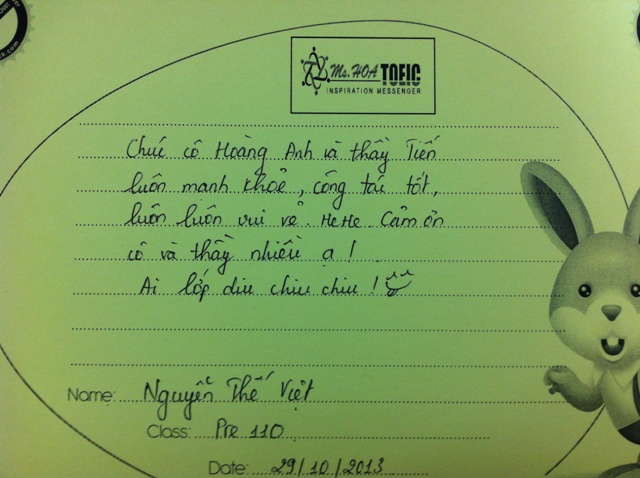 Ms. HOA TOEIC
INSPIRATION MESSENGER
Chúc cô Hoàng Anh và thầy Tiến
luôn mạnh khoẻ, công tác tốt,
luôn luôn vui vẻ. HeHe. Cảm ơn
cô và thầy nhiều ạ!
Ai lớp diu chiu chiu!
Name: Nguyễn Thế Việt
Class: Pre 110
Date: 29/10/2013